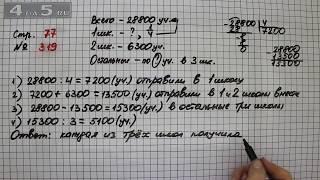 4·5·RU
Стр. 77
№ 319
Всего - 28800 уч.
1 шк. - ?, 
2 шк. - 6300 уч.
Остальные - по ? уч. в 3 шк.
28800 4
28 7200
8
8
0
28800
13500
15300
1) 28800 : 4 = 7200 (уч.) отправили в 1 школу
2) 7200 + 6300 = 13500 (уч.) отправили в 1 и 2 школы вместе
3) 28800 - 13500 = 15300 (уч.) в остальные три школы
4) 15300 : 3 = 5100 (уч.)
Ответ: каждая из трёх школ получила